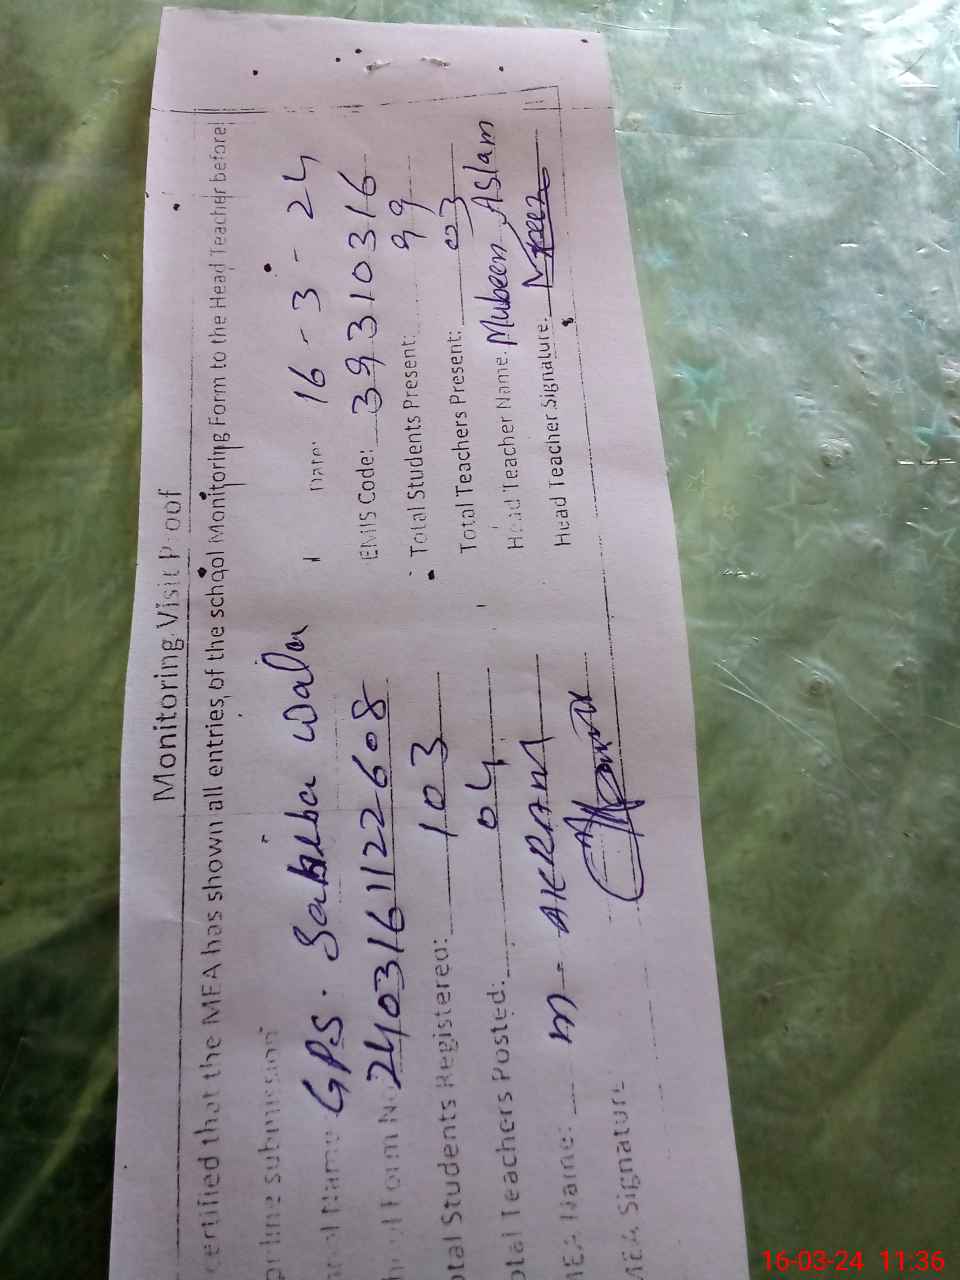 Monitoring Visit Proof
certified that the MEA has shown all entries of the school Monitoring Form to the Head Teacher before
submission
GPS. Wala
Date: 16 - 3 - 24
Form No 2403161122608
EMIS Code: 39310316
otal Students Registered: 103
Total Students Present: 99
otal Teachers Posted: 04
Total Teachers Present: 03
MEA Name: M - AKRAM
Head Teacher Name: Mubeen Aslam
MEA Signature
Head Teacher Signature:
16-03-24 11:36